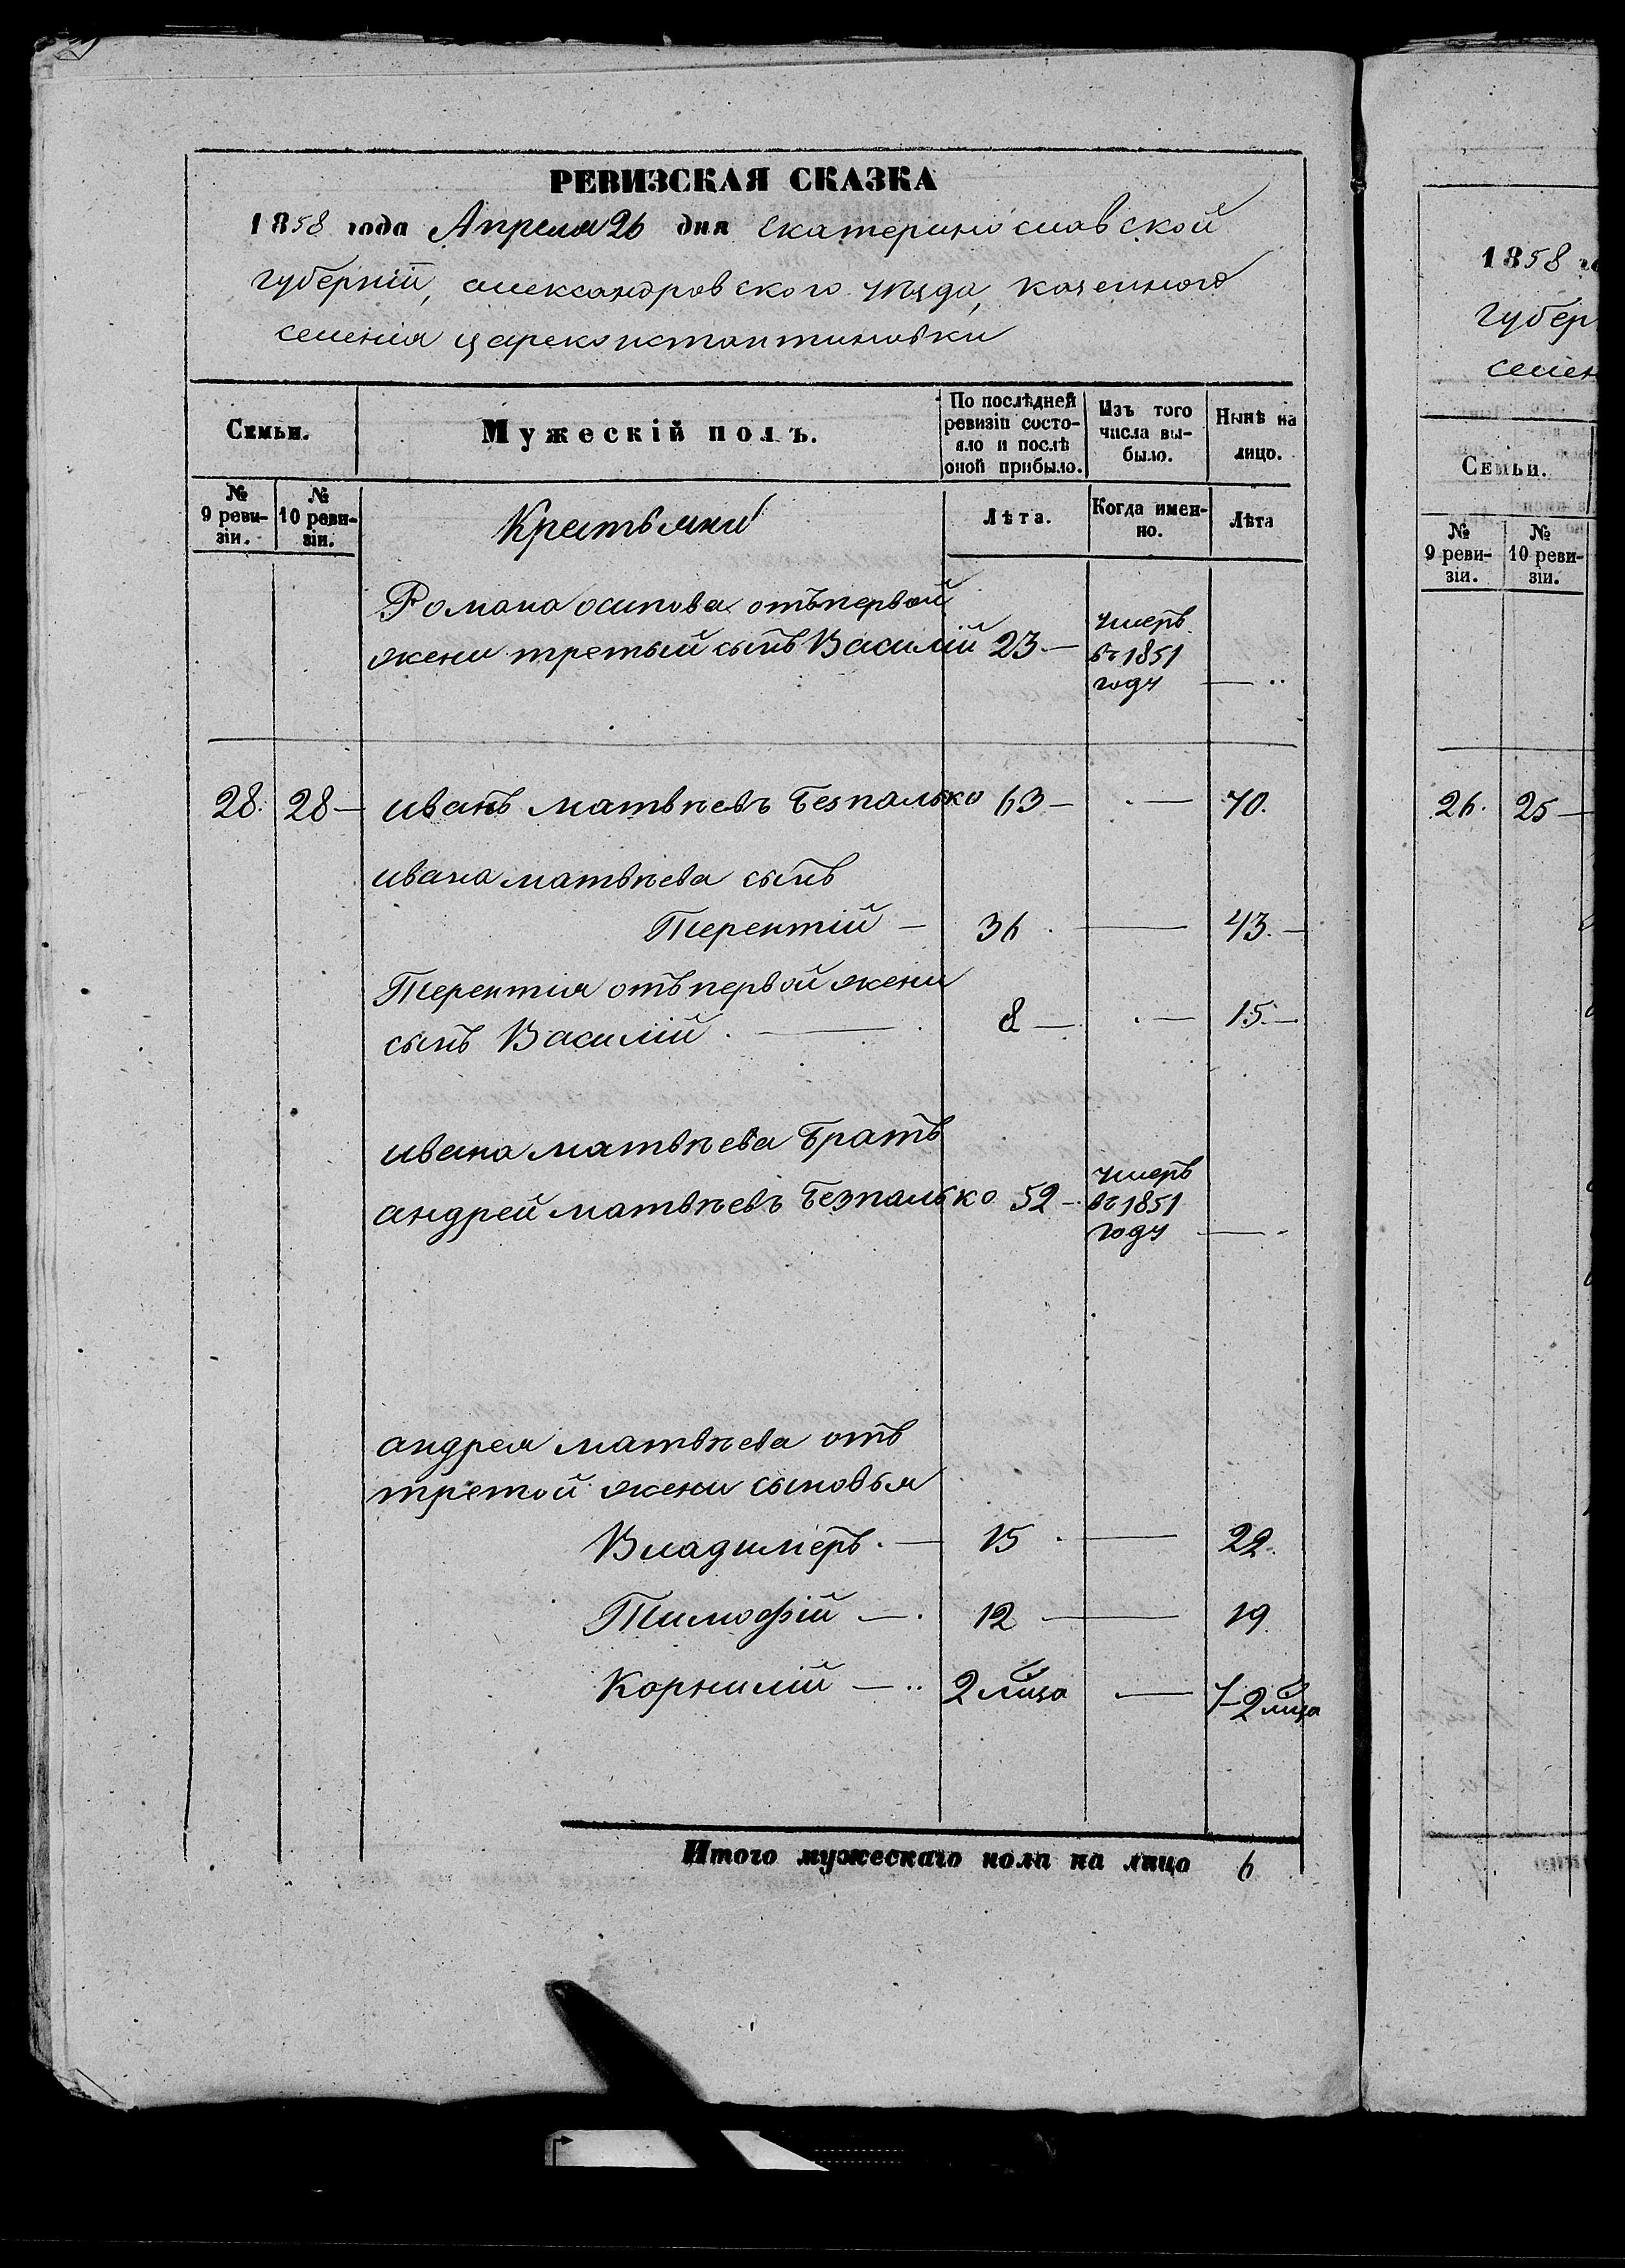 РЕВИЗСКАЯ СКАЗКА
1858 года Апреля 26 дня Екатеринославской
губерніи, александровского уѣзда, казенного
селенія царек онстантиновки
Семьи.
Мужескій полъ.
По послѣдней ревизіи состояло и послѣ оной прибыло.
Изъ того числа выбыло.
Нынѣ на лицо.
№ 9 ревизіи.
№ 10 ревизіи.
Крестьяни
Лѣта.
Когда именно.
Лѣта
Романа осипова отъ первой
жени третый сынъ Василій 23 — умеръ въ 1851 году — ..
28. 28 — иванъ матвѣевъ Безпалько 63 — . — 70.
ивана матвѣева сынъ
Терентій — 36 . — 43. —
Терентія отъ первой жени
сынъ Василій . — . 8 — . — 15. —
ивана матвѣева братъ
андрей матвѣевъ Безпалько 52 — умеръ въ 1851 году — -
андрея матвѣева отъ
третой жени сыновья
Владимеръ. — 15 . — 22.
Тимофій — . 12 — 19.
Корнилій — .. 2 лица — 7 - 2 лица
Итого мужескаго пола на лицо 6
1858 го
губер
селен
Семьи.
№ 9 ревизіи.
№ 10 ревизіи.
26. 25 —